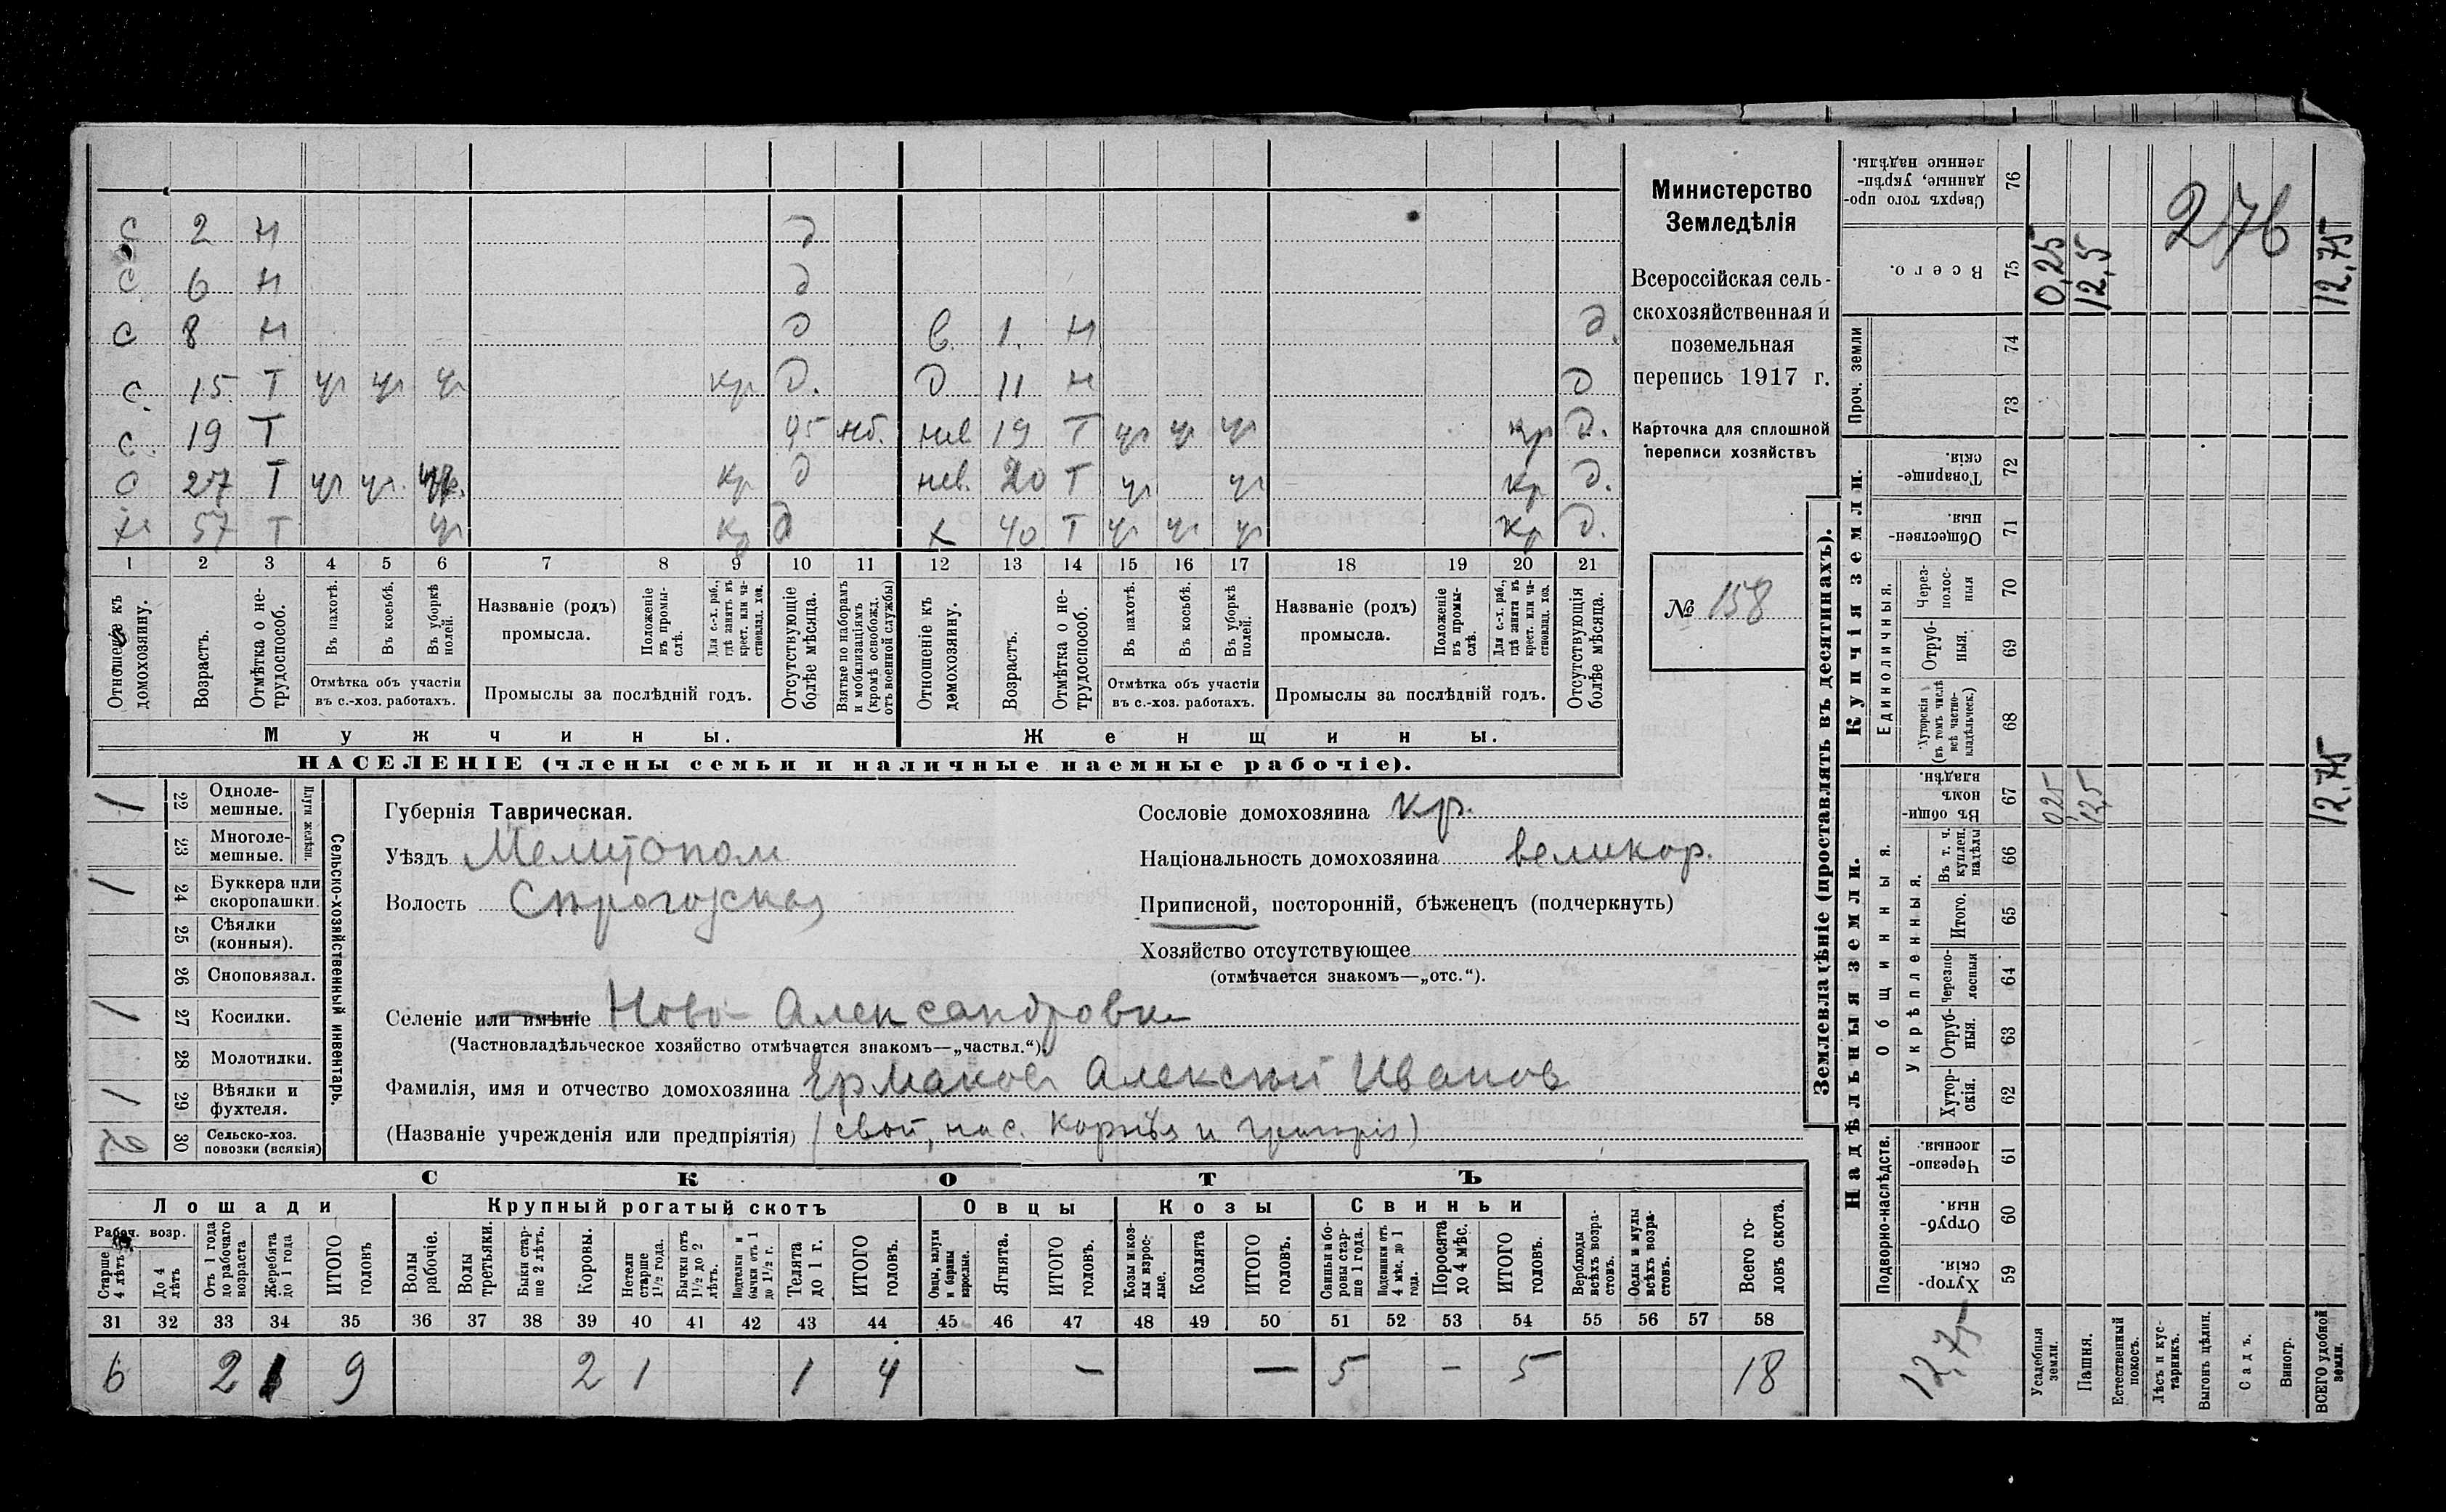 С 2 Н д
С 6 Н д
С 8 Н д в. 1. Н д.
С. 15 Т чр чр чр кр д. д 11 н д
С. 19 Т 95 нб. нев 19 Т чр чр чр кр д.
27 Т чр чр. кр д нев. 20 Т чр чр кр д.
х 57 Т чр кр д х 40 Т чр чр чр кр д.
1 2 3 4 5 6 7 8 9 10 11 12 13 14 15 16 17 18 19 20 21
Отношеніе къ домохозяину.
Возрастъ.
Отмѣтка о нетрудоспособ.
Въ пахотѣ.
Въ косьбѣ.
Въ уборкѣ полей.
Отмѣтка объ участіи
въ с.-хоз. работахъ.
Названіе (родъ)
промысла.
Положеніе въ промыслѣ.
Для с.-х. раб., гдѣ занятъ въ крест. или частновлад. хоз.
Промыслы за послѣдній годъ.
Отсутствующіе болѣе мѣсяца.
Взятые по наборамъ и мобилизаціямъ (кромѣ освобожд. отъ военной службы)
Отношеніе къ домохозяину.
Возрастъ.
Отмѣтка о нетрудоспособ.
Въ пахотѣ.
Въ косьбѣ.
Въ уборкѣ полей.
Отмѣтка объ участіи
въ с.-хоз. работахъ.
Названіе (родъ)
промысла.
Положеніе въ промыслѣ.
Для с.-х. раб., гдѣ занята въ крест. или частновлад. хоз.
Промыслы за послѣдній годъ.
Отсутствующія болѣе мѣсяца.
Мужчины. Женщины.
НАСЕЛЕНІЕ (члены семьи и наличные наемные рабочіе).
Министерство
Земледѣлія
Всероссійская сель-
скохозяйственная и
поземельная
перепись 1917 г.
Карточка для сплошной
переписи хозяйствъ
№ 158
1 22 Однолемешные.
23 Многолемешные.
Плуги желѣзн.
1 24 Буккера или скоропашки.
25 Сѣялки (конныя).
26 Сноповязал.
1 27 Косилки.
28 Молотилки.
1 29 Вѣялки и фухтеля.
2 30 Сельско-хоз. повозки (всякія)
Сельско-хозяйственный инвентарь.
Губернія Таврическая.
Уѣздъ Мелитопол
Волость
Селеніе или имѣніе Ново-Александровка
(Частновладѣльческое хозяйство отмѣчается знакомъ—„частвл.“).
Фамилія, имя и отчество домохозяина Ермаков Алексѣй Иванов
(Названіе учрежденія или предпріятія) (свой, на с.
Сословіе домохозяина кр.
Національность домохозяина великор.
Приписной, посторонній, бѣженецъ (подчеркнуть)
Хозяйство отсутствующее
(отмѣчается знакомъ—„отс.“).
СКОТЪ
Лошади Крупный рогатый скотъ Овцы Козы Свиньи
Рабоч. возр.
Старше 4 лѣтъ
До 4 лѣтъ
Отъ 1 года до рабочаго возраста
Жеребята до 1 года
ИТОГО головъ
Волы рабочіе.
Волы третьяки.
Быки старше 2 лѣтъ.
Коровы.
Нетели старше 1½ года.
Бычки отъ 1½ до 2 лѣтъ.
Подтелки и бычки отъ 1 до 1½ г.
Телята до 1 г.
ИТОГО головъ.
Овцы, валухи и бараны взрослые.
Ягнята.
ИТОГО головъ.
Козы и козлы взрослые.
Козлята
ИТОГО головъ.
Свиньи и боровы старше 1 года.
Подсвинки отъ 4 мѣс. до 1 года.
Поросята до 4 мѣс.
ИТОГО головъ.
Верблюды всѣхъ возрастовъ.
Ослы и мулы всѣхъ возрастовъ.
Всего головъ скота.
31 32 33 34 35 36 37 38 39 40 41 42 43 44 45 46 47 48 49 50 51 52 53 54 55 56 57 58
6 2 1 9 2 1 1 4 — — 5 — 5 18
Землевладѣніе (проставлять въ десятинахъ).
Надѣльныя земли. Купчія земли. Проч. земли
Подворно-наслѣдств.
Общинныя.
Укрѣпленныя.
Единоличныя.
Сверхъ того проданные, укрѣпленные надѣлы. 76
Всего. 75 0,25 12,5 12,75
276
74
73
Товарищескія. 72
Общественныя. 71
Черезполосныя 70
Отрубныя. 69
Хуторскія (въ томъ числѣ всѣ частновладѣльческ.) 68
Въ общинномъ владѣн. 67 025 12,5 12.75
Въ т. ч. куплен. надѣлы 66
Итого. 65
Черезполосныя 64
Отрубныя. 63
Хуторскія. 62
Черезполосныя. 61
Отрубныя. 60
Хуторскія. 59
12,75
Усадебныя земли.
Пашня.
Естественный покосъ.
Лѣсъ и кустарникъ.
Выгонъ цѣлин.
Садъ.
Виногр.
ВСЕГО удобной земли.